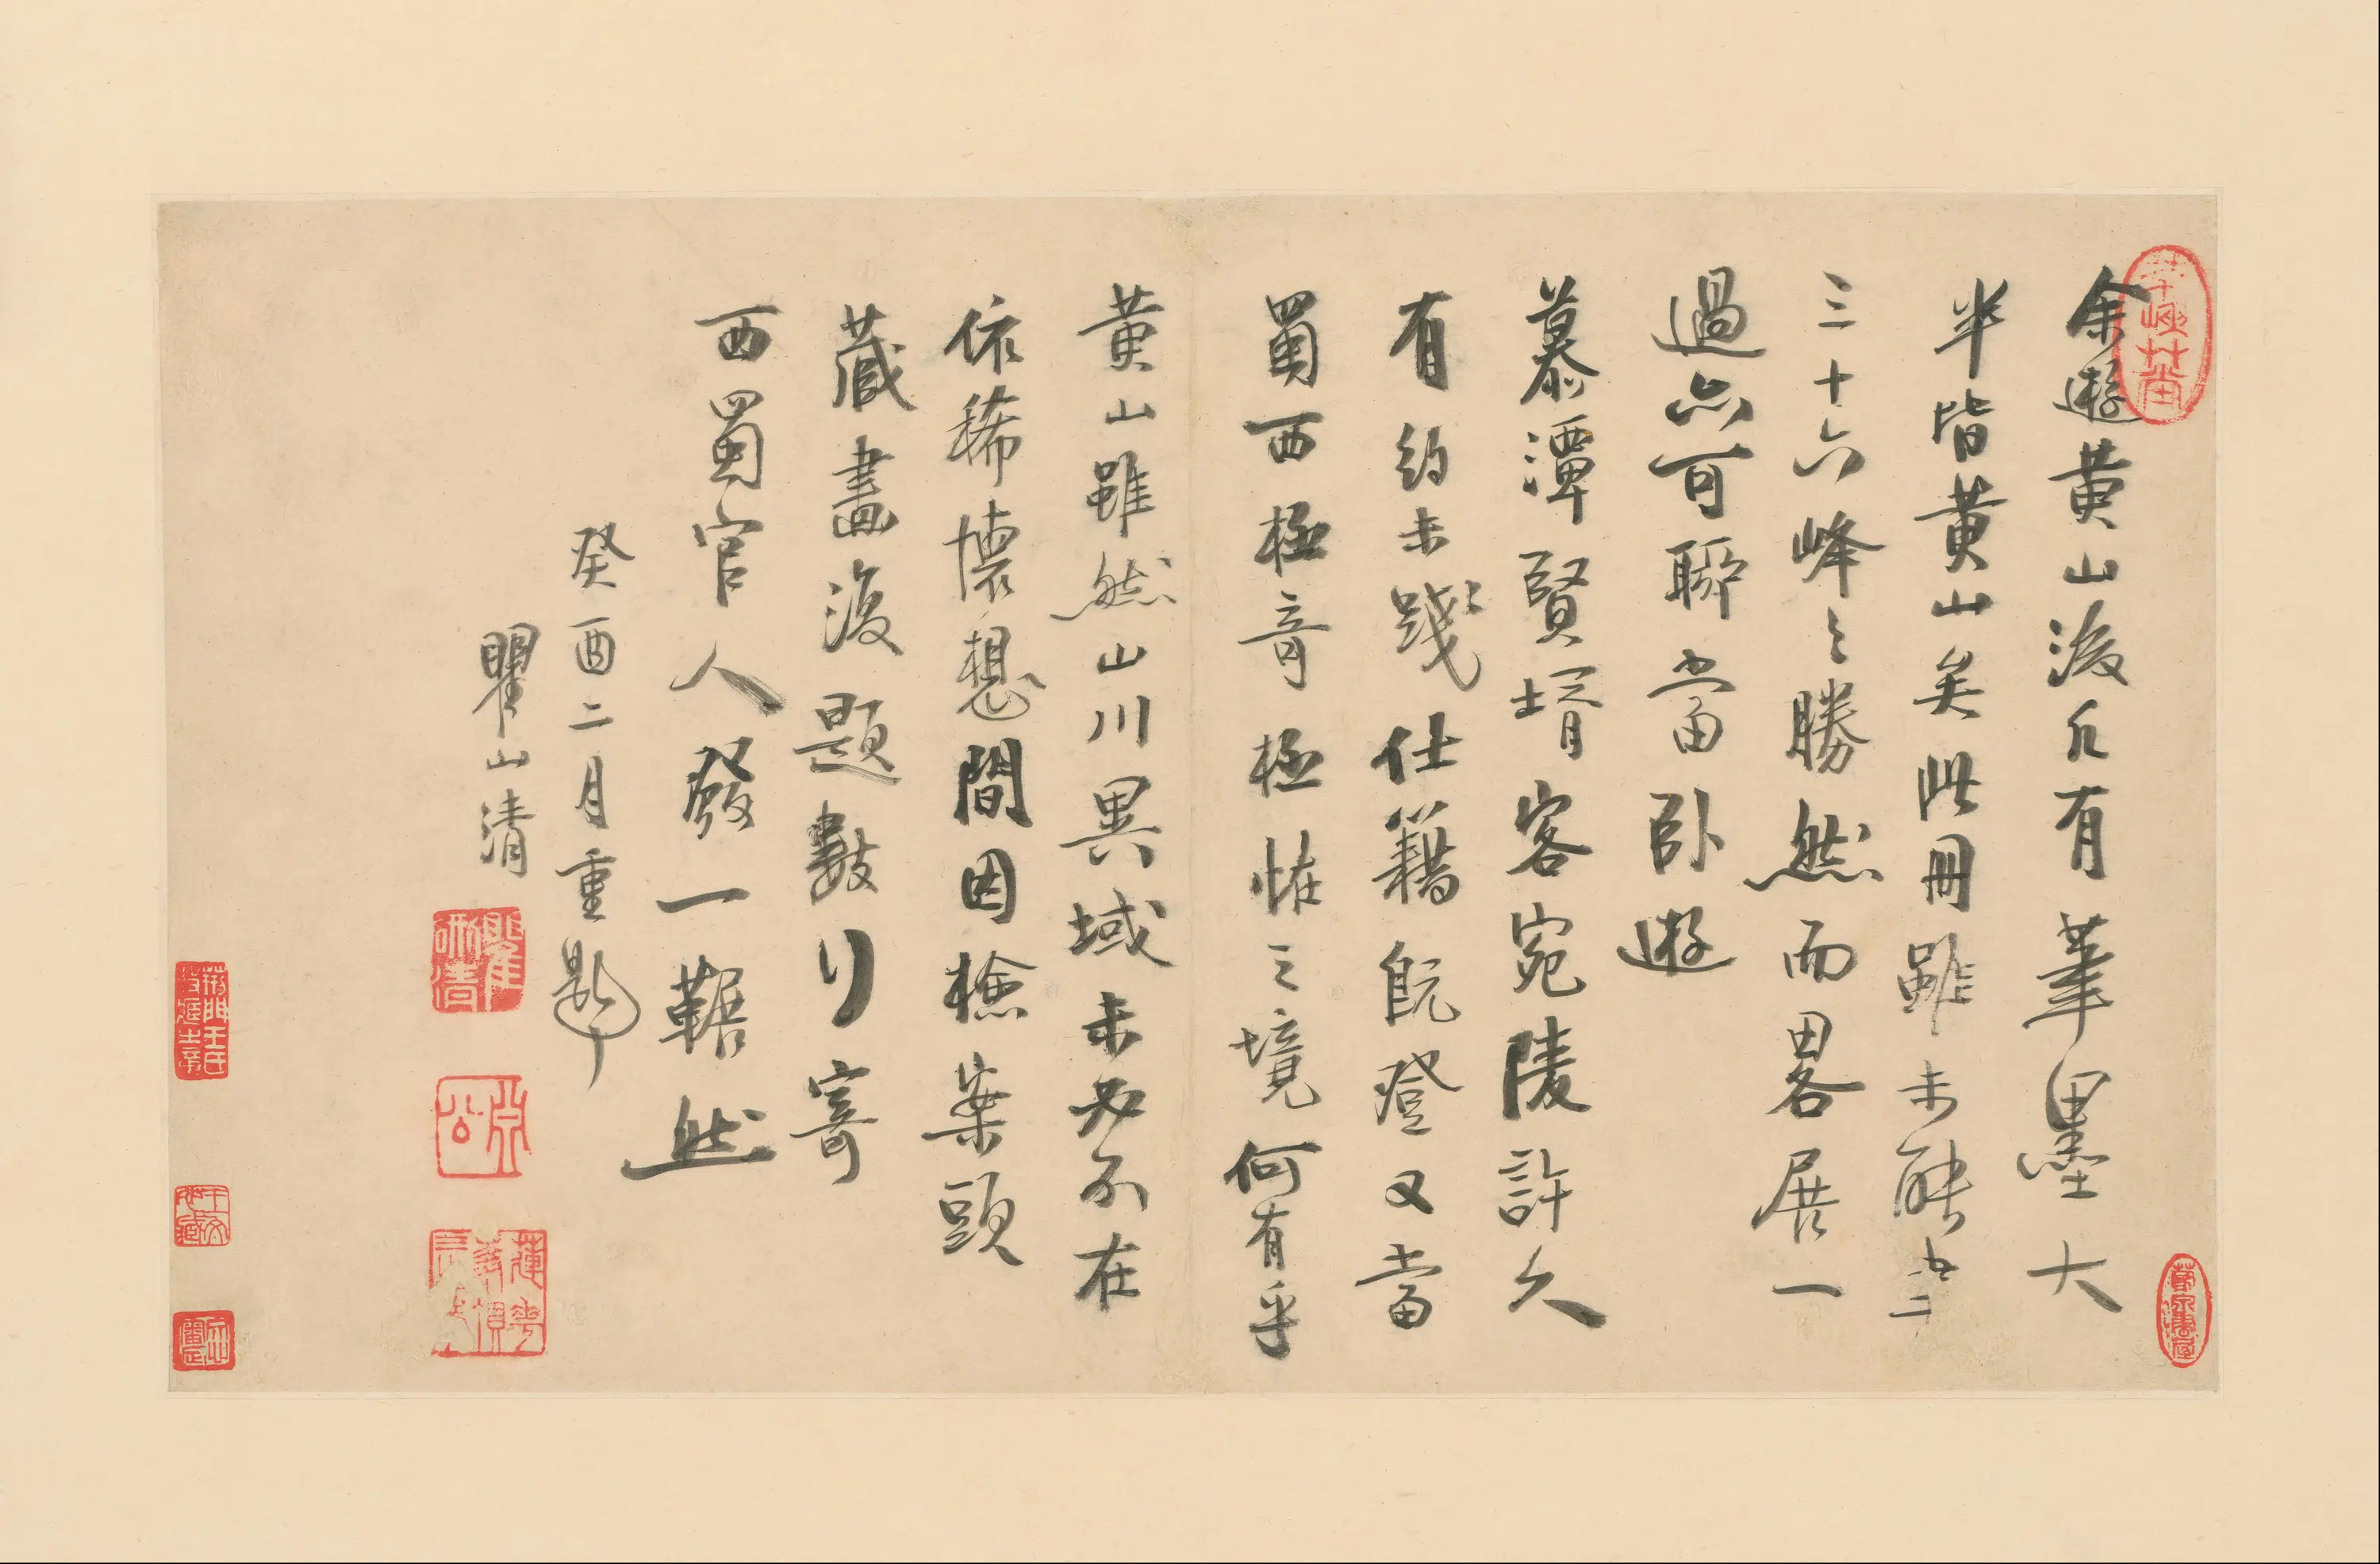 余遊黃山後凡有筆墨大
半皆黃山矣此冊雖未能盡
三十六峰之勝然而畧展一
過亦可聊當卧遊
慕潭賢壻客宛陵許久
有約未踐仕籍既登又當
蜀西極奇極怪之境何有乎
黃山雖然山川異域未必不在
依稀懷想間因檢案頭
藏畫後題數行寄
西蜀官人發一囅然
癸酉二月重題
瞿山清
瞿硎清